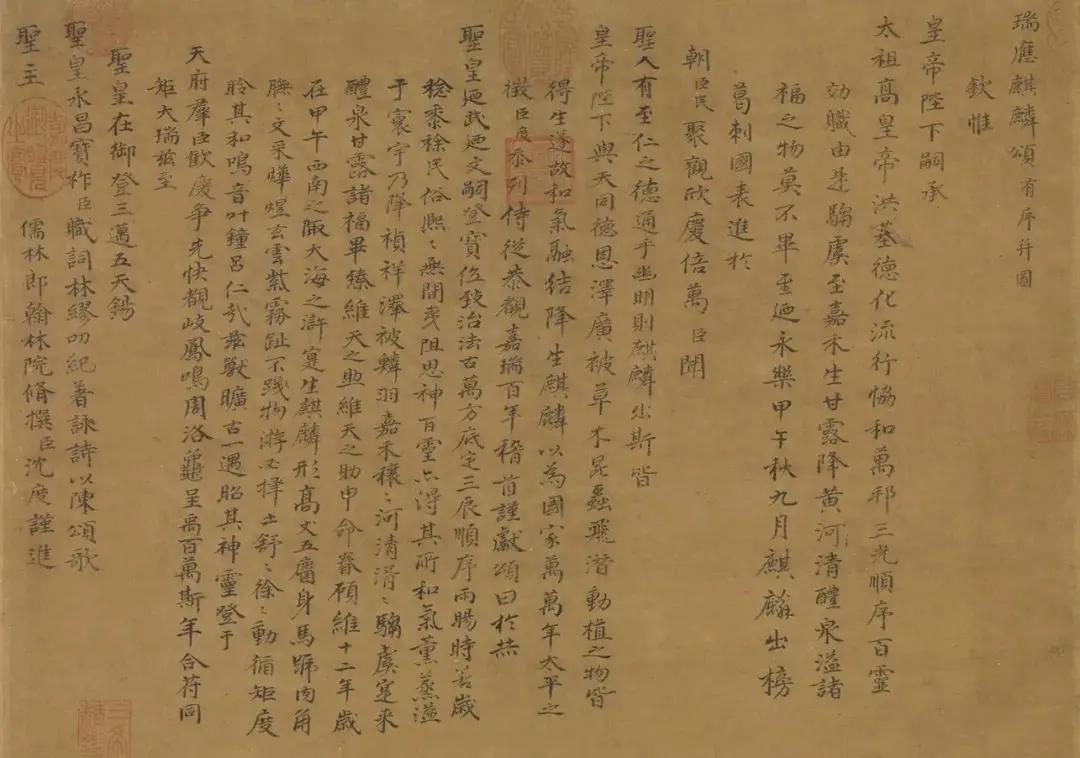 瑞應麒麟頌有序并圖
欽惟
皇帝陛下嗣承
太祖高皇帝洪基德化流行協和萬邦三光順序百靈
効職由是騶虞至嘉禾生甘露降黄河清醴泉溢諸
福之物莫不畢至迺永樂甲午秋九月麒麟出榜
葛剌國表進於
朝臣民聚觀欣慶倍萬臣聞
聖人有至仁之德通乎幽明則麒麟出斯皆
皇帝陛下與天同德恩澤廣被草木昆蟲飛潛動植之物皆
得生遂故和氣融結降生麒麟以為國家萬萬年太平之
徵臣度忝列侍從恭觀嘉瑞百拜稽首謹獻頌曰於赫
聖皇迺武迺文嗣登寶位致治法古萬方底定三辰順序雨暘時若歲
稔黍稌民俗熙〻無間夷阻思神百靈亦得其所和氣薰蒸溢
于寰宇乃降禎祥澤被鱗羽嘉禾穰〻河清湑〻騶虞寔來
醴泉甘露諸福畢臻維天之與維天之助申命眷顧維十二年歲
在甲午西南之陬大海之滸寔生麒麟形高丈五麕身馬蹄肉角
膴〻文采曄煜玄雲紫霧趾不踐物游必擇土舒〻徐〻動循矩度
聆其和鳴音叶鐘呂仁哉茲獸曠古一遇昭其神靈登于
天府羣臣歡慶爭先快覩岐鳳鳴周洛龜呈禹百萬斯年合符同
矩大瑞茲至
聖皇在御登三邁五天錫
聖皇永昌寶祚臣職詞林繆叨紀著詠詩以陳頌歌
聖主
儒林郎翰林院脩撰臣沈度謹進